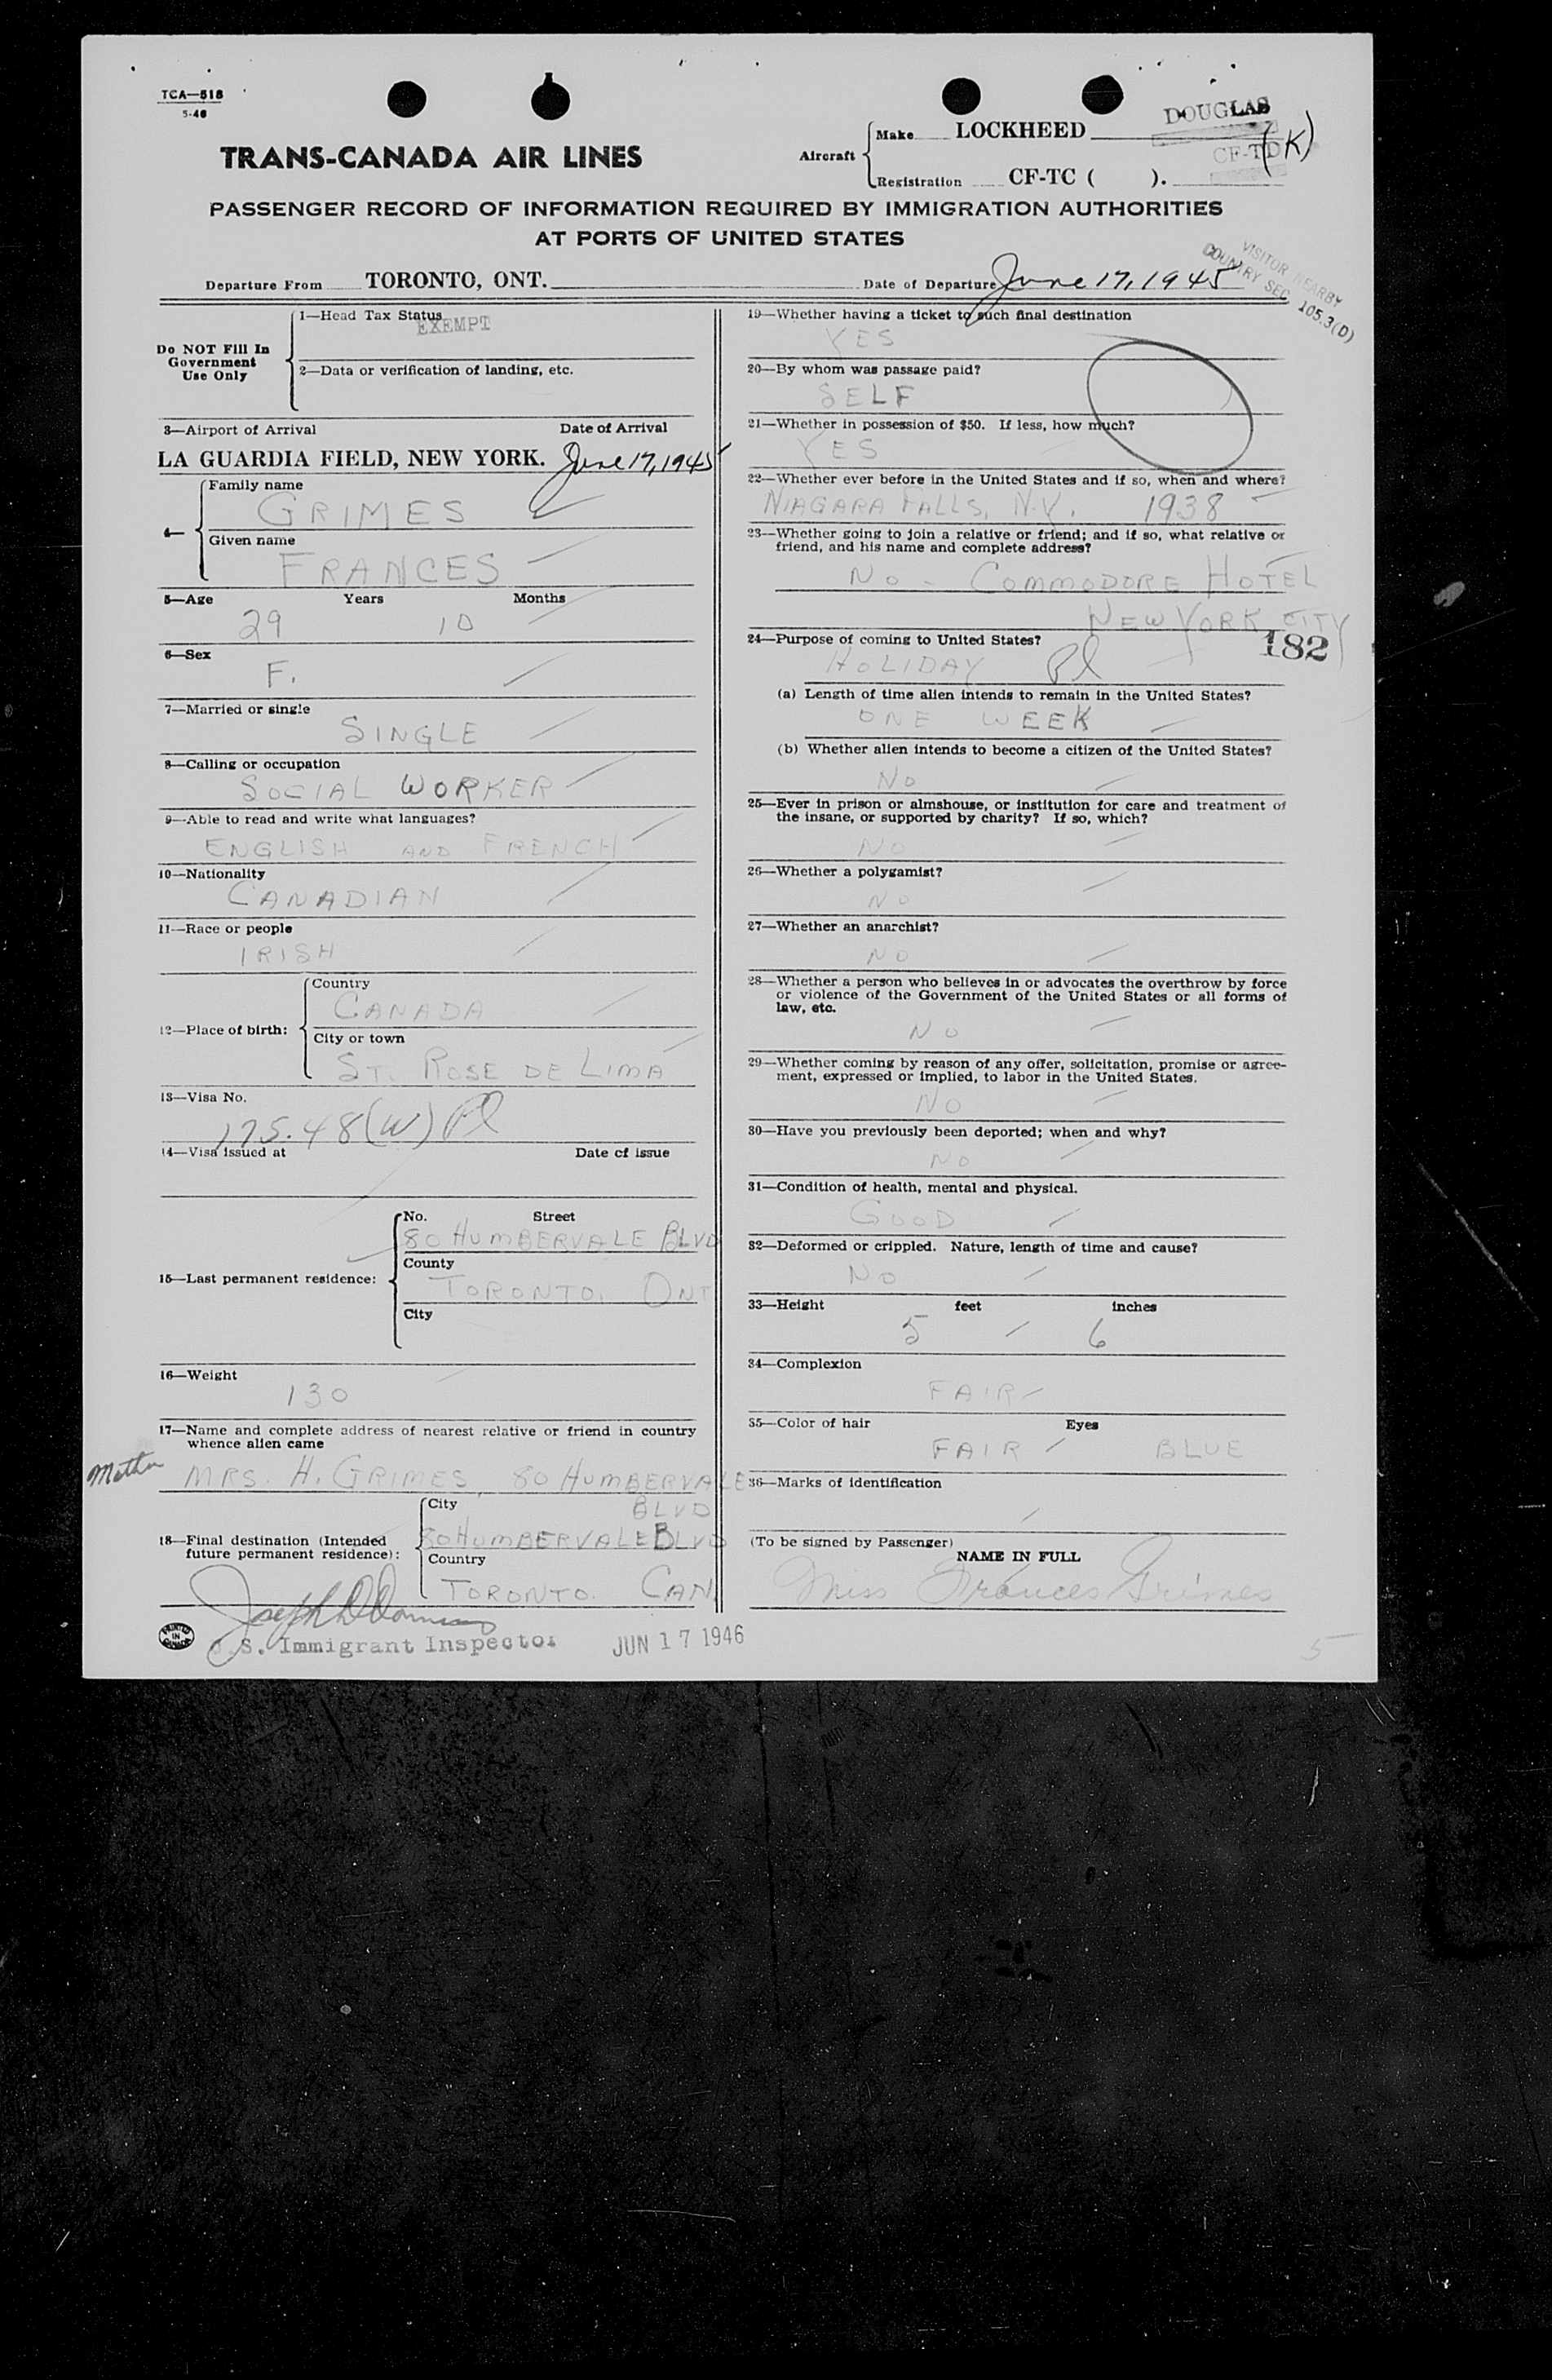 TCA—518
5-46
TRANS-CANADA AIR LINES
Aircraft
Make LOCKHEED DOUGLAS
Registration CF-TC ( ). CF-TD (K)
PASSENGER RECORD OF INFORMATION REQUIRED BY IMMIGRATION AUTHORITIES
AT PORTS OF UNITED STATES
VISITOR NEARBY
COUNTRY SEC 105.3(D)
Departure From TORONTO, ONT. Date of Departure June 17, 1945
Do NOT Fill In
Government
Use Only
1—Head Tax Status
EXEMPT
2—Data or verification of landing, etc.
3—Airport of Arrival Date of Arrival
LA GUARDIA FIELD, NEW YORK. June 17, 1945
4—
Family name
GRIMES
Given name
FRANCES
5—Age Years Months
29 10
6—Sex
F.
7—Married or single
SINGLE
8—Calling or occupation
SOCIAL WORKER
9—Able to read and write what languages?
ENGLISH AND FRENCH
10—Nationality
CANADIAN
11—Race or people
IRISH
12—Place of birth:
Country
CANADA
City or town
ST. ROSE DE LIMA
13—Visa No.
175.48(W)
14—Visa issued at Date of issue
15—Last permanent residence:
No. Street
80 HUMBERVALE BLVD
County
TORONTO, ONT
City
16—Weight
130
17—Name and complete address of nearest relative or friend in country
whence alien came
Mother MRS. H. GRIMES, 80 HUMBERVALE
BLVD
18—Final destination (Intended
future permanent residence):
City
80 HUMBERVALE BLVD
Country
TORONTO. CAN.
U.S. Immigrant Inspector JUN 17 1946
PRINTED
IN
CANADA
19—Whether having a ticket to such final destination
YES
20—By whom was passage paid?
SELF
21—Whether in possession of $50. If less, how much?
YES
22—Whether ever before in the United States and if so, when and where?
NIAGARA FALLS, N.Y. 1938
23—Whether going to join a relative or friend; and if so, what relative or
friend, and his name and complete address?
NO - COMMODORE HOTEL
NEW YORK CITY
182
24—Purpose of coming to United States?
HOLIDAY
(a) Length of time alien intends to remain in the United States?
ONE WEEK
(b) Whether alien intends to become a citizen of the United States?
NO
25—Ever in prison or almshouse, or institution for care and treatment of
the insane, or supported by charity? If so, which?
NO
26—Whether a polygamist?
NO
27—Whether an anarchist?
NO
28—Whether a person who believes in or advocates the overthrow by force
or violence of the Government of the United States or all forms of
law, etc.
NO
29—Whether coming by reason of any offer, solicitation, promise or agree-
ment, expressed or implied, to labor in the United States.
NO
30—Have you previously been deported; when and why?
NO
31—Condition of health, mental and physical.
GOOD
32—Deformed or crippled. Nature, length of time and cause?
NO
33—Height feet inches
5 6
34—Complexion
FAIR
35—Color of hair Eyes
FAIR BLUE
36—Marks of identification
(To be signed by Passenger)
NAME IN FULL
Miss Frances Grimes
5